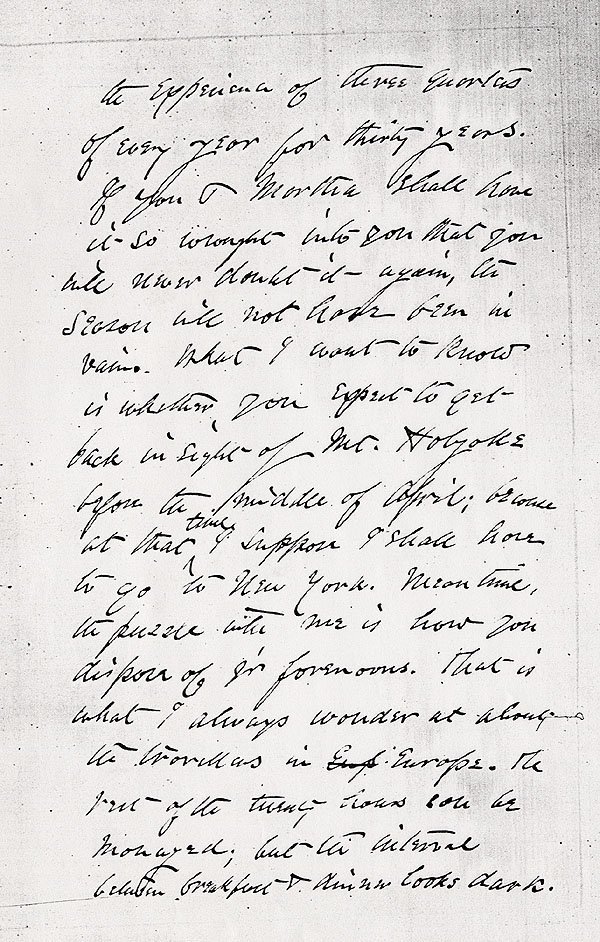 the experience of three quarters
of every year for thirty years.
If you & Martha shall have
it so wrought into you that you
will never doubt it again, the
season will not have been in
vain. What I want to know
is whether you expect to get
back in sight of Mt. Holyoke
before the middle of April; because
at that time I suppose I shall have
to go to New York. Meantime,
the puzzle with me is how you
dispose of yr forenoons. That is
what I always wonder at about
the travellers in Eup. Europe. The
rest of the twenty hours can be
managed; but the interval
between breakfast & dinner looks dark.